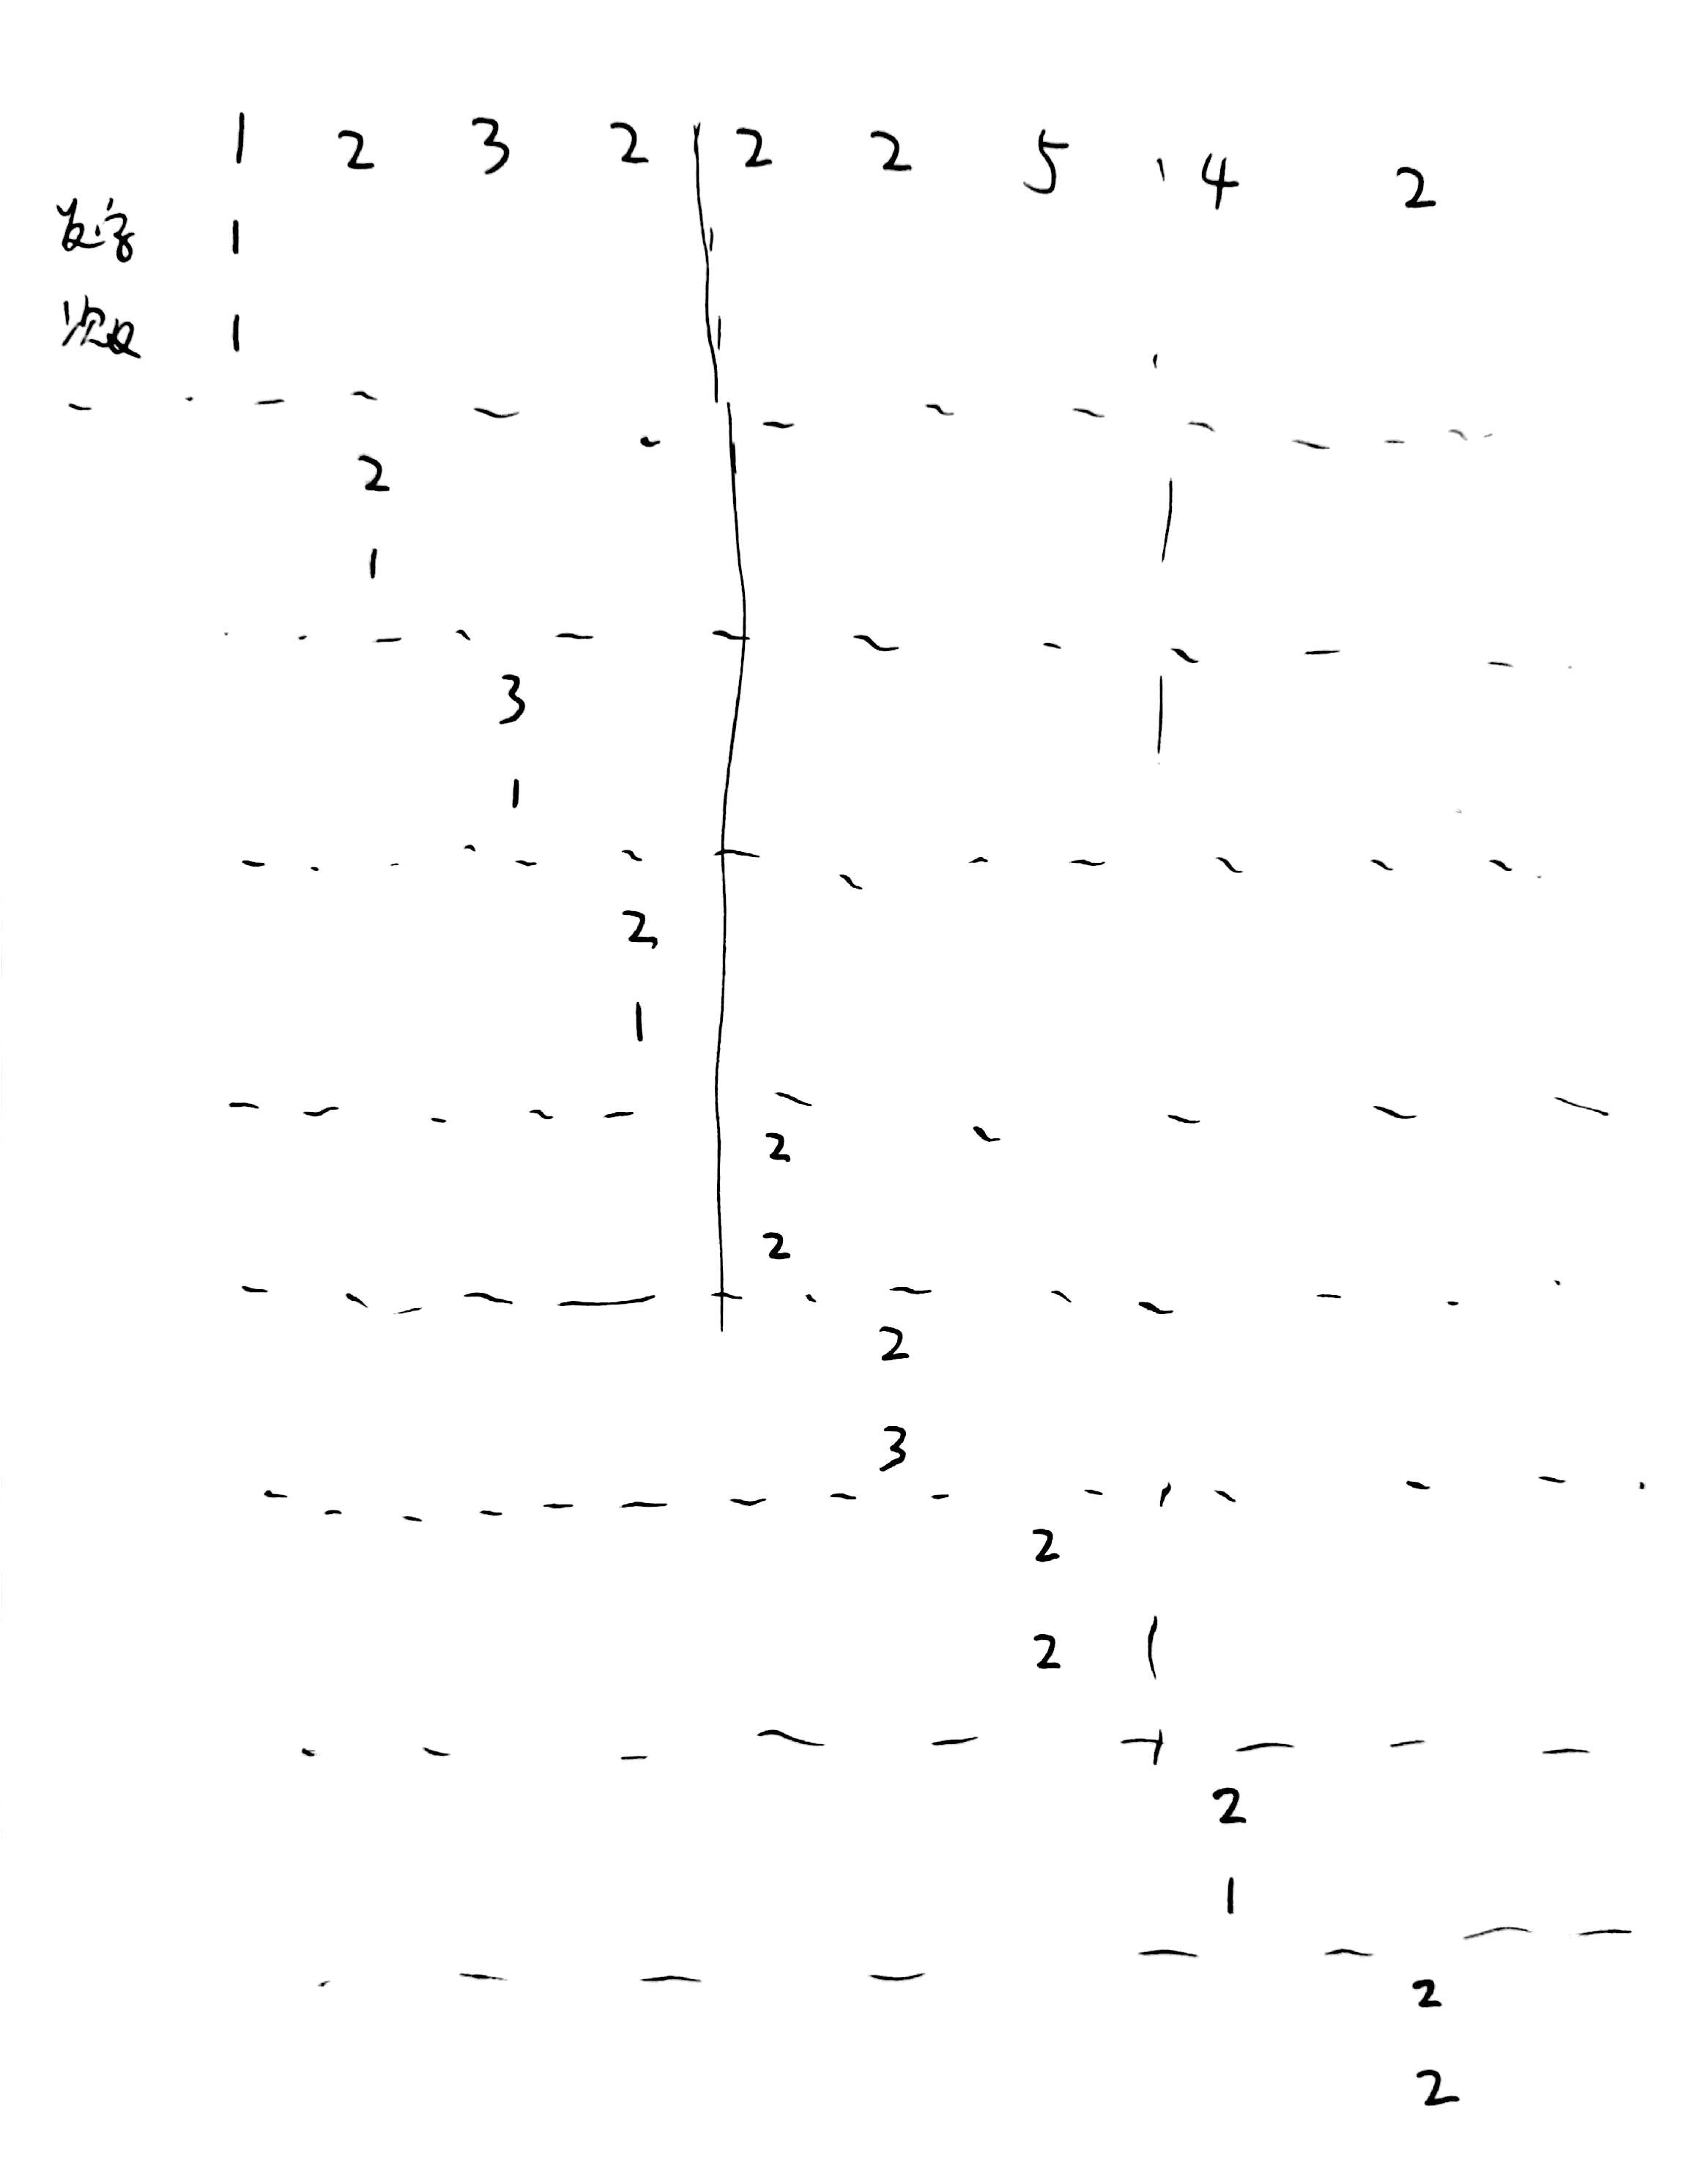 1 2 3 2 2 2 5 4 2
数字 1
次数 1
2
1
3
1
2
1
2
2
2
3
2
2
2
1
2
2